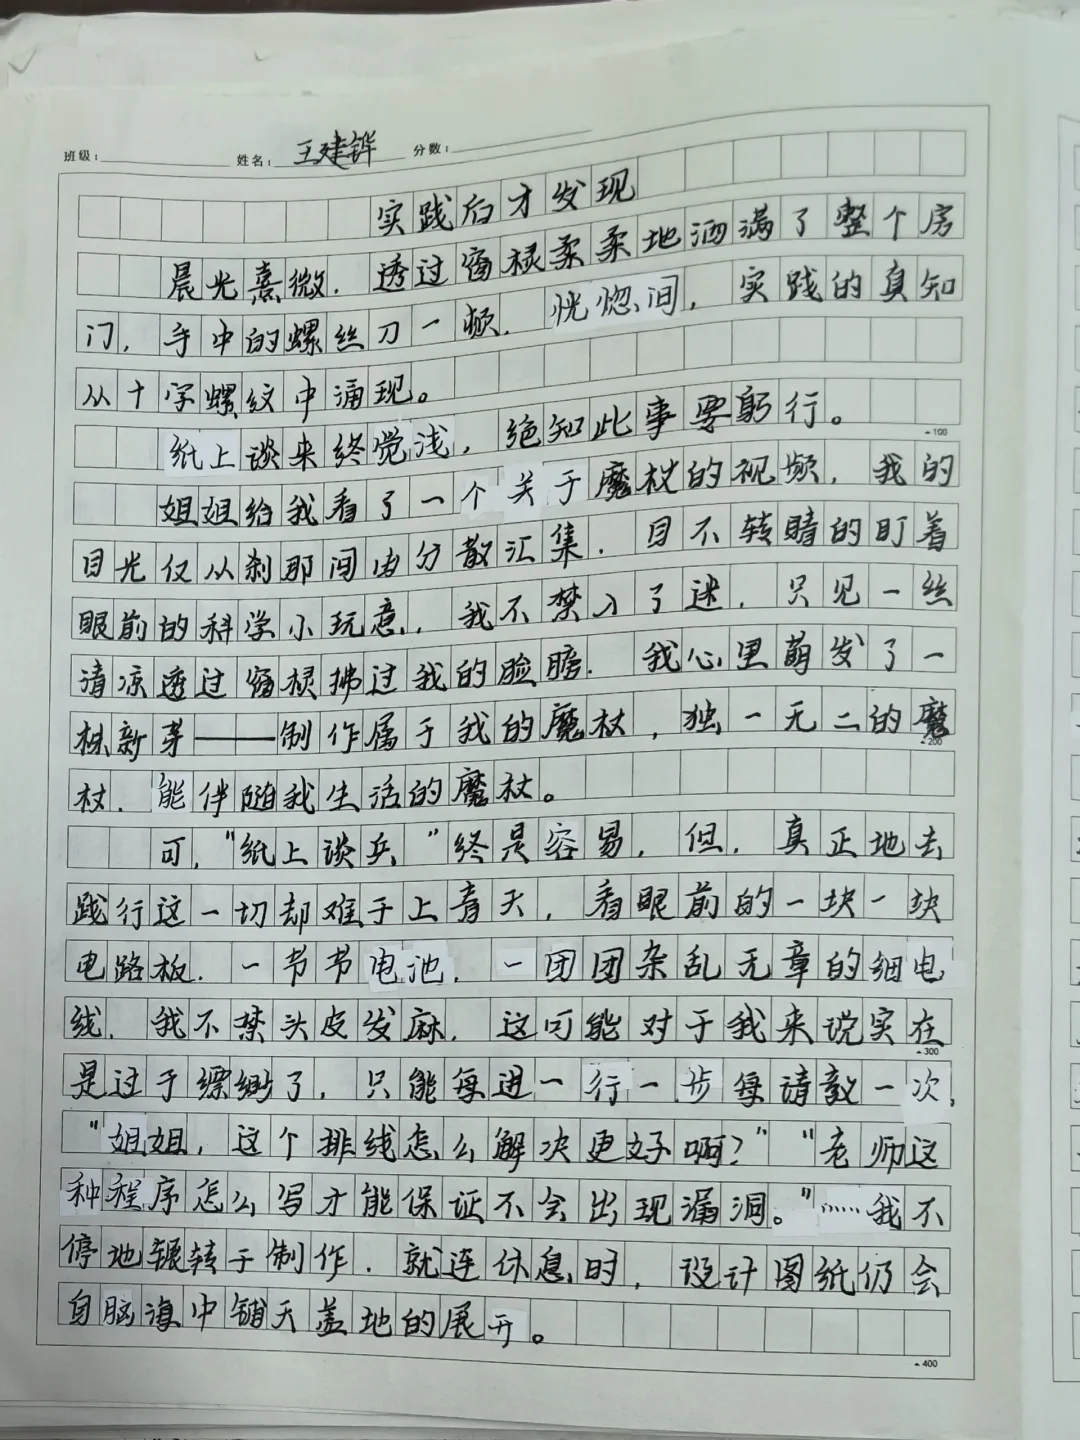 班级： 姓名：王建铧 分数：
实践后才发现
晨光熹微，透过窗棂柔柔地洒满了整个房
门，手中的螺丝刀一顿，恍惚间，实践的真知
从十字螺纹中涌现。
纸上谈来终觉浅，绝知此事要躬行。
100
姐姐给我看了一个关于魔杖的视频，我的
目光仅从刹那间由分散汇集，目不转睛的盯着
眼前的科学小玩意，我不禁入了迷，只见一丝
清凉透过窗棂拂过我的脸瞻，我心里萌发了一
株新芽——制作属于我的魔杖，独一无二的魔
200
杖，能伴随我生活的魔杖。
可，“纸上谈兵”终是容易，但，真正地去
践行这一切却难于上青天，看眼前的一块一块
电路板，一节节电池，一团团杂乱无章的细电
线，我不禁头皮发麻，这可能对于我来说实在
300
是过于缥缈了，只能每进一行一步每请教一次，
“姐姐，这个排线怎么解决更好啊？”“老师这
种程序怎么写才能保证不会出现漏洞。”……我不
停地辗转于制作，就连休息时，设计图纸仍会
自脑海中铺天盖地的展开。
400